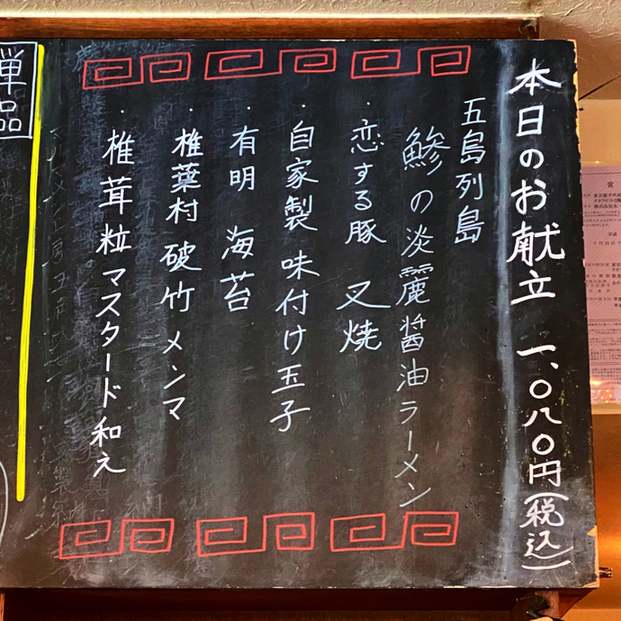 本日のお献立 一、〇八〇円(税込)
五島列島
鯵の淡麗醤油ラーメン
・恋する豚 叉焼
・自家製 味付け玉子
・有明 海苔
・椎葉村 破竹 メンマ
・椎茸 粒マスタード和え
単品